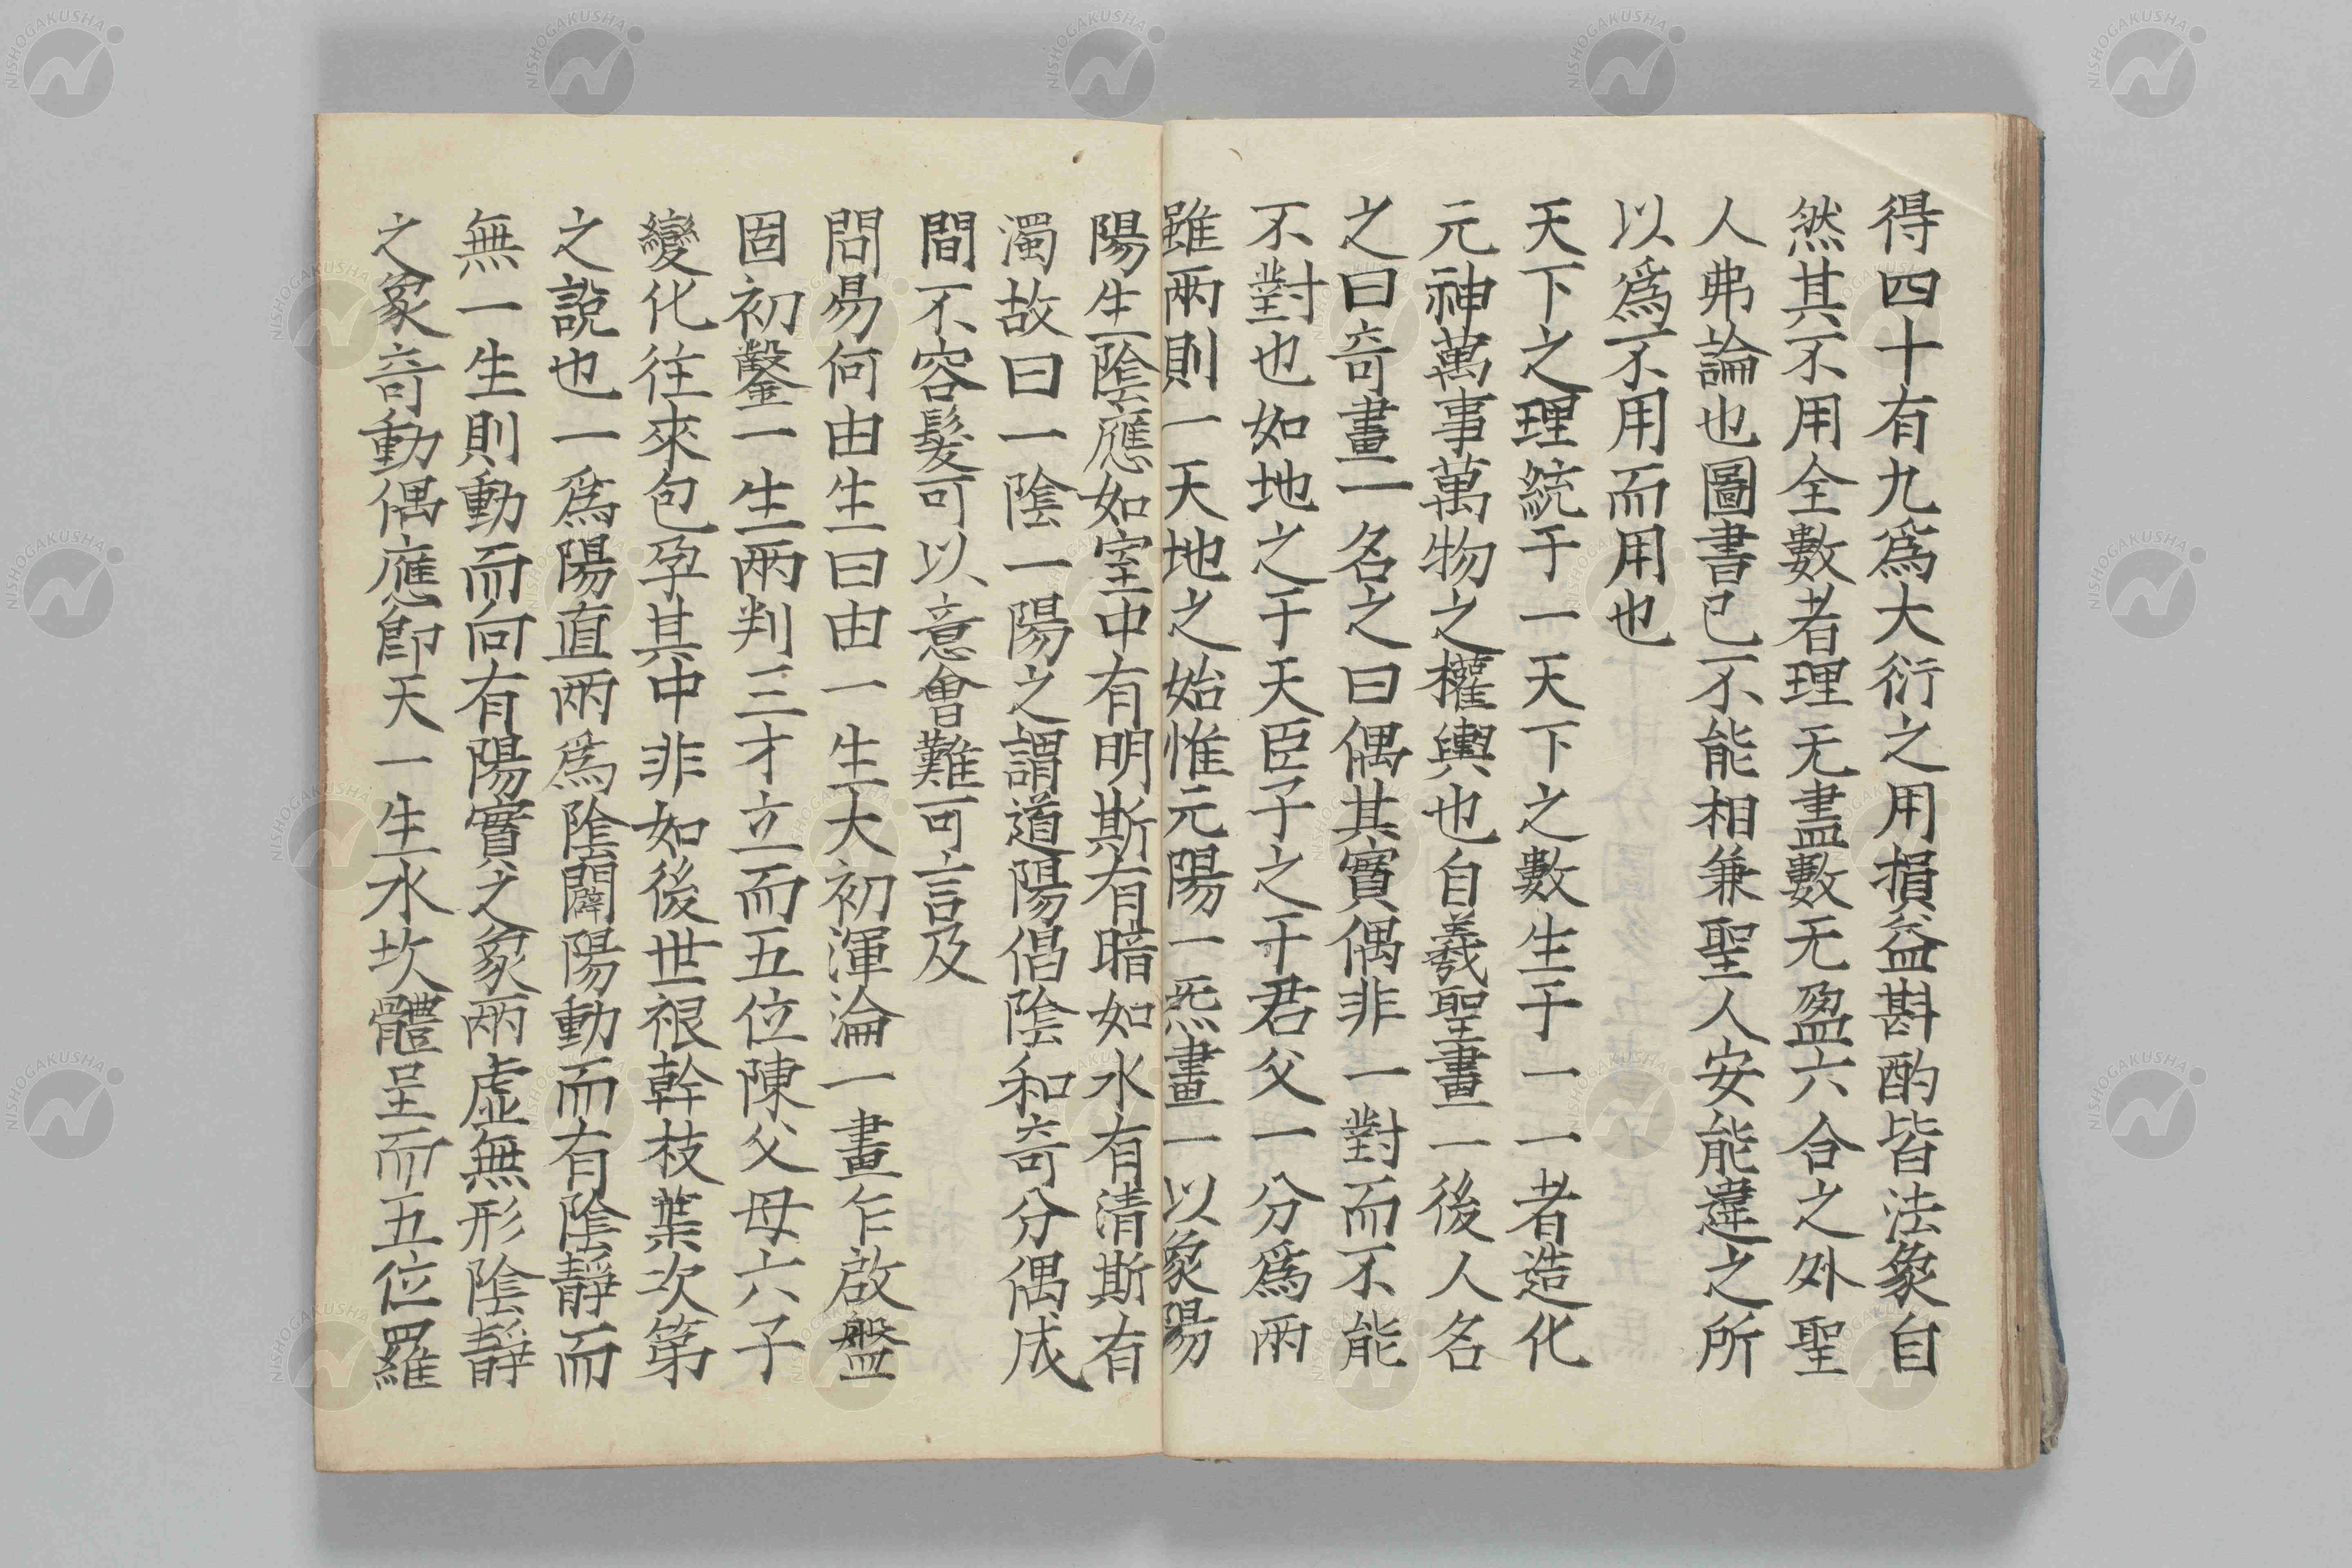 得四十有九爲大衍之用損益斟酌皆法象自
然其不用全數者理无盡數无盈六合之外聖
人弗論也圖書已不能相兼聖人安能違之所
以爲不用而用也
天下之理統于一天下之數生于一一者造化
元神萬事萬物之權輿也自羲聖畫一後人名
之曰奇畫一名之曰偶其實偶非一對而不能
不對也如地之于天臣子之于君父一分爲兩
雖兩則一天地之始惟元陽一炁畫一以象陽
陽生陰應如室中有明斯有暗如水有清斯有
濁故曰一陰一陽之謂道陽倡陰和奇分偶成
間不容髮可以意會難可言及
問易何由生曰由一生大初渾淪一畫乍啟盤
固初鑿一生兩判三才立而五位陳父母六子
變化往來包孕其中非如後世根幹枝葉次第
之說也一爲陽直兩爲陰闢陽動而有陰靜而
無一生則動而向有陽實之象兩虛無形陰靜
之象奇動偶應卽天一生水坎體呈而五位羅
NISHOGAKUSHA